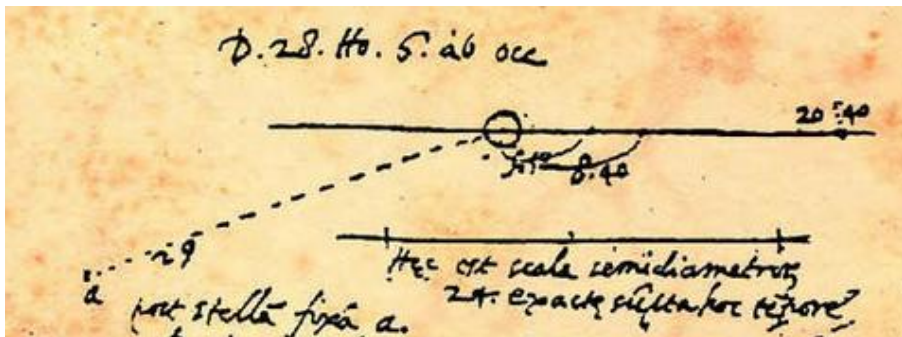 D. 28. Ho. 6. ab occ
20:40
8.40
29
a
Hęc est scala semidiametror
24. exactę sũpta hoc tẽpore
post stellã fixã a.